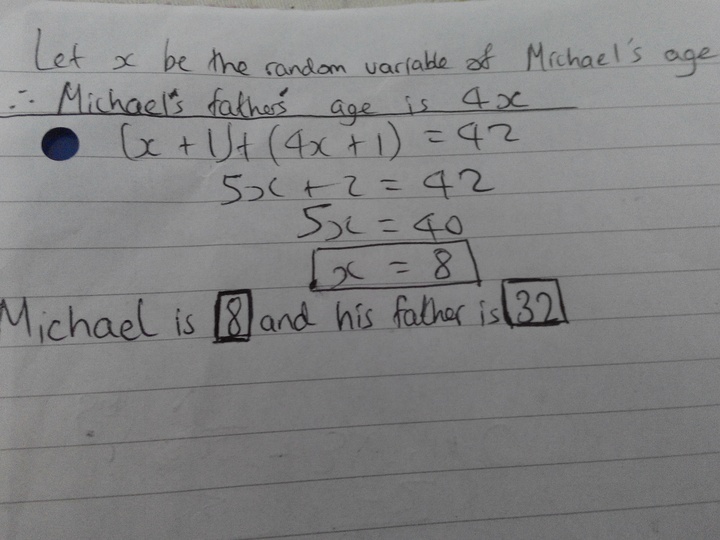 Let x be the random variable of Michael's age
∴ Michael's fathers' age is 4x
(x + 1) + (4x + 1) = 42
5x + 2 = 42
5x = 40
x = 8
Michael is 8 and his father is 32